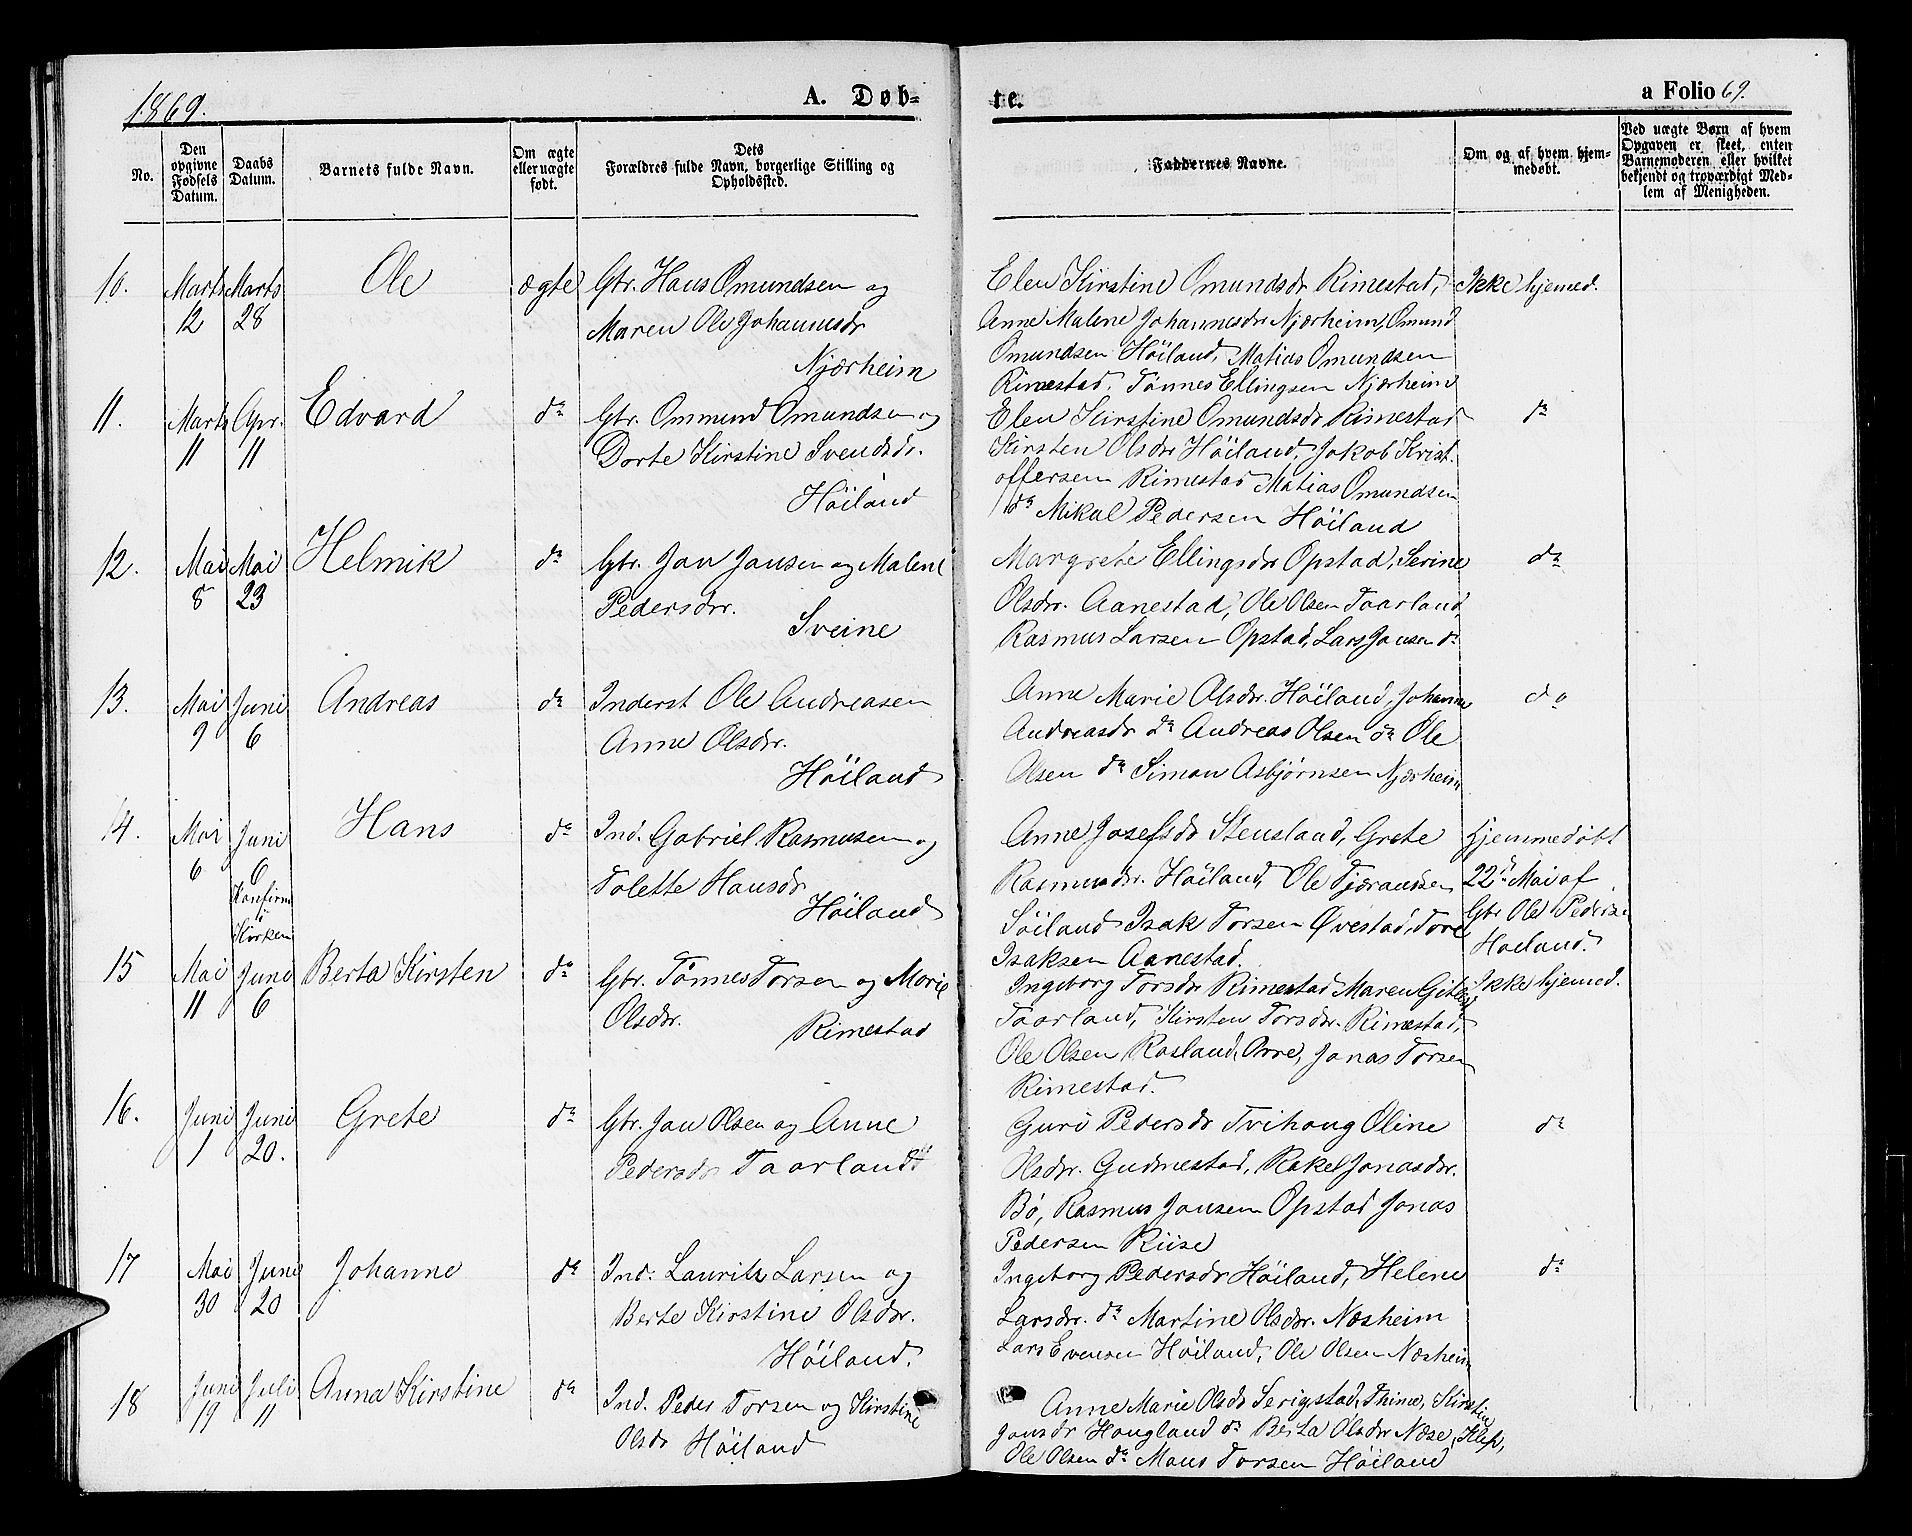 1869.
A. Døb-
te.
a Folio 69.
No.
Den opgivne Fødsels Datum.
Daabs Datum.
Barnets fulde Navn.
Om ægte eller uægte født.
Dets Forældres fulde Navn, borgerlige Stilling og Opholdssted.
Faddernes Navne.
Om og af hvem hjemmedøbt.
Ved uægte Børn af hvem Opgaven er skeet, enten Barnemoderen eller hvilket bekjendt og troværdigt Medlem af Menigheden.
10. Marts 12 Marts 28 Ole ægte Gbr. Hans Omundsen og
Maren Ole Johannesdr
Njærheim
Elen Kirstine Omundsdr Rimestad,
Anne Malene Johannesdr Njærheim, Omund
Omundsen Höiland, Matias Omundsen
Rimestad, Tönnes Ellingsen Njærheim
Ikke hjemmed.
11. Marts 11 Apr. 11 Edvard do Gbr. Ommund Omundsen og
Dorte Kirstine Svendsdr.
Höiland
Elen Kirstine Omundsdr Rimestad
Kirsten Olsdr Höiland, Jakob Krist-
offersen Rimestad Matias Omundsen
do Mikal Pedersen Höiland
do
12. Mai 8 Mai 23 Helmik do Gbr. Jan Jansen og Malene
Pedersdr.
Sveine
Margrete Ellingsdr Opstad, Serine
Olsdr. Aanestad, Ole Olsen Taarland,
Rasmus Larsen Opstad, Lars Jansen do
do
13. Mai 9 Juni 6 Andreas do Inderst Ole Andreasen
Anne Olsdr.
Höiland
Anne Marie Olsdr. Höiland, Johanne
Andreasdr do Andreas Olsen do Ole
Olsen do Simon Asbjørnsen Njærheim
do
14. Mai 6 Juni 6 Konfirm i Kirken Hans do Ind. Gabriel Rasmusen og
Tolette Hansdr
Höiland
Anne Josefsdr Stensland, Grete
Rasmusdr. Höiland, Ole Tjærandsen
Söiland Isak Torsen Øvestad, Tore
Isaksen Aanestad.
Hjemmedøbt
22de Mai af
Gbr Ole Pedersen
Høiland.
15 Mai 11 Juni 6 Berta Kirsten do Gbr. Tönnes Torsen og Marie
Olsdr.
Rimestad
Ingeborg Torsdr Rimestad Maren
Taarland, Kirsten Torsdr. Rimestad,
Ole Olsen Rosland, Orre, Jonas Torsen
Rimestad.
Ikke hjemmed.
16. Juni 1 Juni 20. Grete do Gbr. Jan Olsen og Anne
Pedersdr Taarland
Guri Pedersdr Tvihaug Oline
Olsdr. Gudmestad, Rakel Jonasdr.
Bö, Rasmus Jansen Opstad Jonas
Pedersen Riise
do
17 Mai 30 Juni 20 Johanne do Ind: Lauritz Larsen og
Berte Kirstine Olsdr.
Höiland.
Ingeborg Pedersdr Höiland, Helene
Larsdr. do Martine Olsdr. Næsheim
Lars Evensen Höiland, Ole Olsen Næsheim
do
18 Juni 19 Juli 11 Anna Kirstine do Ind. Peder Torsen og Kirstine
Olsdr Höiland
Anne Marie Olsdr Serigstad, Thime, Kirstine
Jansdr Haugland do Berta Olsdr Næse, Klep,
Ole Olsen do Maus Torsen Höiland